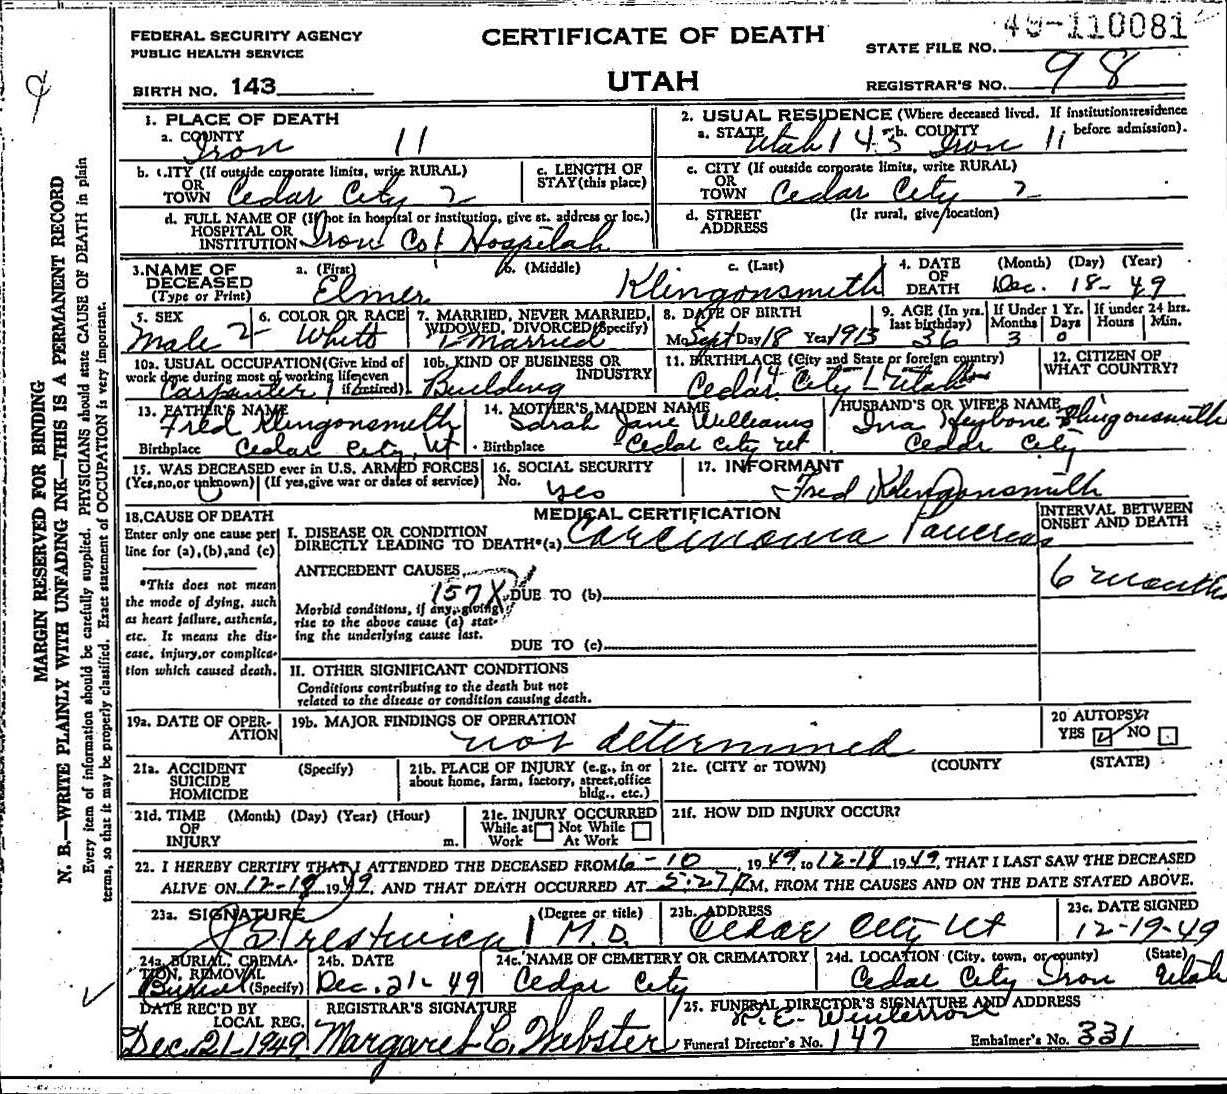 49-110081
FEDERAL SECURITY AGENCY
PUBLIC HEALTH SERVICE
CERTIFICATE OF DEATH
STATE FILE NO.
BIRTH NO. 143
UTAH
REGISTRAR'S NO. 98
MARGIN RESERVED FOR BINDING
N. B.—WRITE PLAINLY WITH UNFADING INK—THIS IS A PERMANENT RECORD
Every item of information should be carefully supplied. PHYSICIANS should state CAUSE OF DEATH in plain
terms, so that it may be properly classified. Exact statement of OCCUPATION is very important.
1. PLACE OF DEATH
a. COUNTY Iron 11
2. USUAL RESIDENCE (Where deceased lived. If institution:residence before admission).
a. STATE Utah 143 b. COUNTY Iron 11
b. CITY (If outside corporate limits, write RURAL) OR TOWN Cedar City 2
c. LENGTH OF STAY (this place)
c. CITY (If outside corporate limits, write RURAL) OR TOWN Cedar City 2
d. FULL NAME OF (If not in hospital or institution, give st. address or loc.) HOSPITAL OR INSTITUTION Iron Co. Hospital
d. STREET ADDRESS (If rural, give location)
3. NAME OF DECEASED (Type or Print) a. (First) Elmer b. (Middle) c. (Last) Klingonsmith
4. DATE OF DEATH (Month) (Day) (Year) Dec. 18-49
5. SEX Male 2
6. COLOR OR RACE White
7. MARRIED, NEVER MARRIED, WIDOWED, DIVORCED (Specify) 1 Married
8. DATE OF BIRTH Mo. Sept Day 18 Year 1913
9. AGE (In yrs. last birthday) 36 If Under 1 Yr. Months 3 Days 0 If under 24 hrs. Hours Min.
10a. USUAL OCCUPATION (Give kind of work done during most of working life, even if retired). Carpenter
10b. KIND OF BUSINESS OR INDUSTRY Building
11. BIRTHPLACE (City and State or foreign country) Cedar City, Utah
12. CITIZEN OF WHAT COUNTRY?
13. FATHER'S NAME Fred Klingonsmith
Birthplace Cedar City, Ut
14. MOTHER'S MAIDEN NAME Sarah Jane Williams
Birthplace Cedar City Ut
HUSBAND'S OR WIFE'S NAME Ina Klingonsmith
Cedar City
15. WAS DECEASED ever in U.S. ARMED FORCES
(Yes, no, or unknown) (If yes, give war or dates of service)
16. SOCIAL SECURITY No. yes
17. INFORMANT Fred Klingonsmith
18. CAUSE OF DEATH
Enter only one cause per line for (a), (b), and (c)
*This does not mean the mode of dying, such as heart failure, asthenia, etc. It means the disease, injury, or complication which caused death.
MEDICAL CERTIFICATION
INTERVAL BETWEEN ONSET AND DEATH
I. DISEASE OR CONDITION DIRECTLY LEADING TO DEATH*(a) Carcinoma Pancreas
6 months
ANTECEDENT CAUSES
157X DUE TO (b)
Morbid conditions, if any, giving rise to the above cause (a) stating the underlying cause last.
DUE TO (c)
II. OTHER SIGNIFICANT CONDITIONS
Conditions contributing to the death but not related to the disease or condition causing death.
19a. DATE OF OPERATION
19b. MAJOR FINDINGS OF OPERATION
not determined
20 AUTOPSY?
YES NO
21a. ACCIDENT SUICIDE HOMICIDE (Specify)
21b. PLACE OF INJURY (e.g., in or about home, farm, factory, street, office bldg., etc.)
21c. (CITY or TOWN) (COUNTY (STATE)
21d. TIME OF INJURY (Month) (Day) (Year) (Hour) m.
21e. INJURY OCCURRED While at Work Not While At Work
21f. HOW DID INJURY OCCUR?
22. I HEREBY CERTIFY THAT I ATTENDED THE DECEASED FROM 6-10, 1949, to 12-18 1949, THAT I LAST SAW THE DECEASED
ALIVE ON 12-18 1949, AND THAT DEATH OCCURRED AT 5:27 P M, FROM THE CAUSES AND ON THE DATE STATED ABOVE.
23a. SIGNATURE Prestwich (Degree or title) M.D.
23b. ADDRESS Cedar City Ut
23c. DATE SIGNED 12-19-49
24a. BURIAL, CREMATION, REMOVAL (Specify) Burial
24b. DATE Dec. 21-49
24c. NAME OF CEMETERY OR CREMATORY Cedar City
24d. LOCATION (City, town, or county) (State) Cedar City Iron Utah
DATE REC'D BY LOCAL REG. Dec. 21-1949
REGISTRAR'S SIGNATURE Margaret C. Webster
25. FUNERAL DIRECTOR'S SIGNATURE AND ADDRESS
Funeral Director's No. 147 Embalmer's No. 331